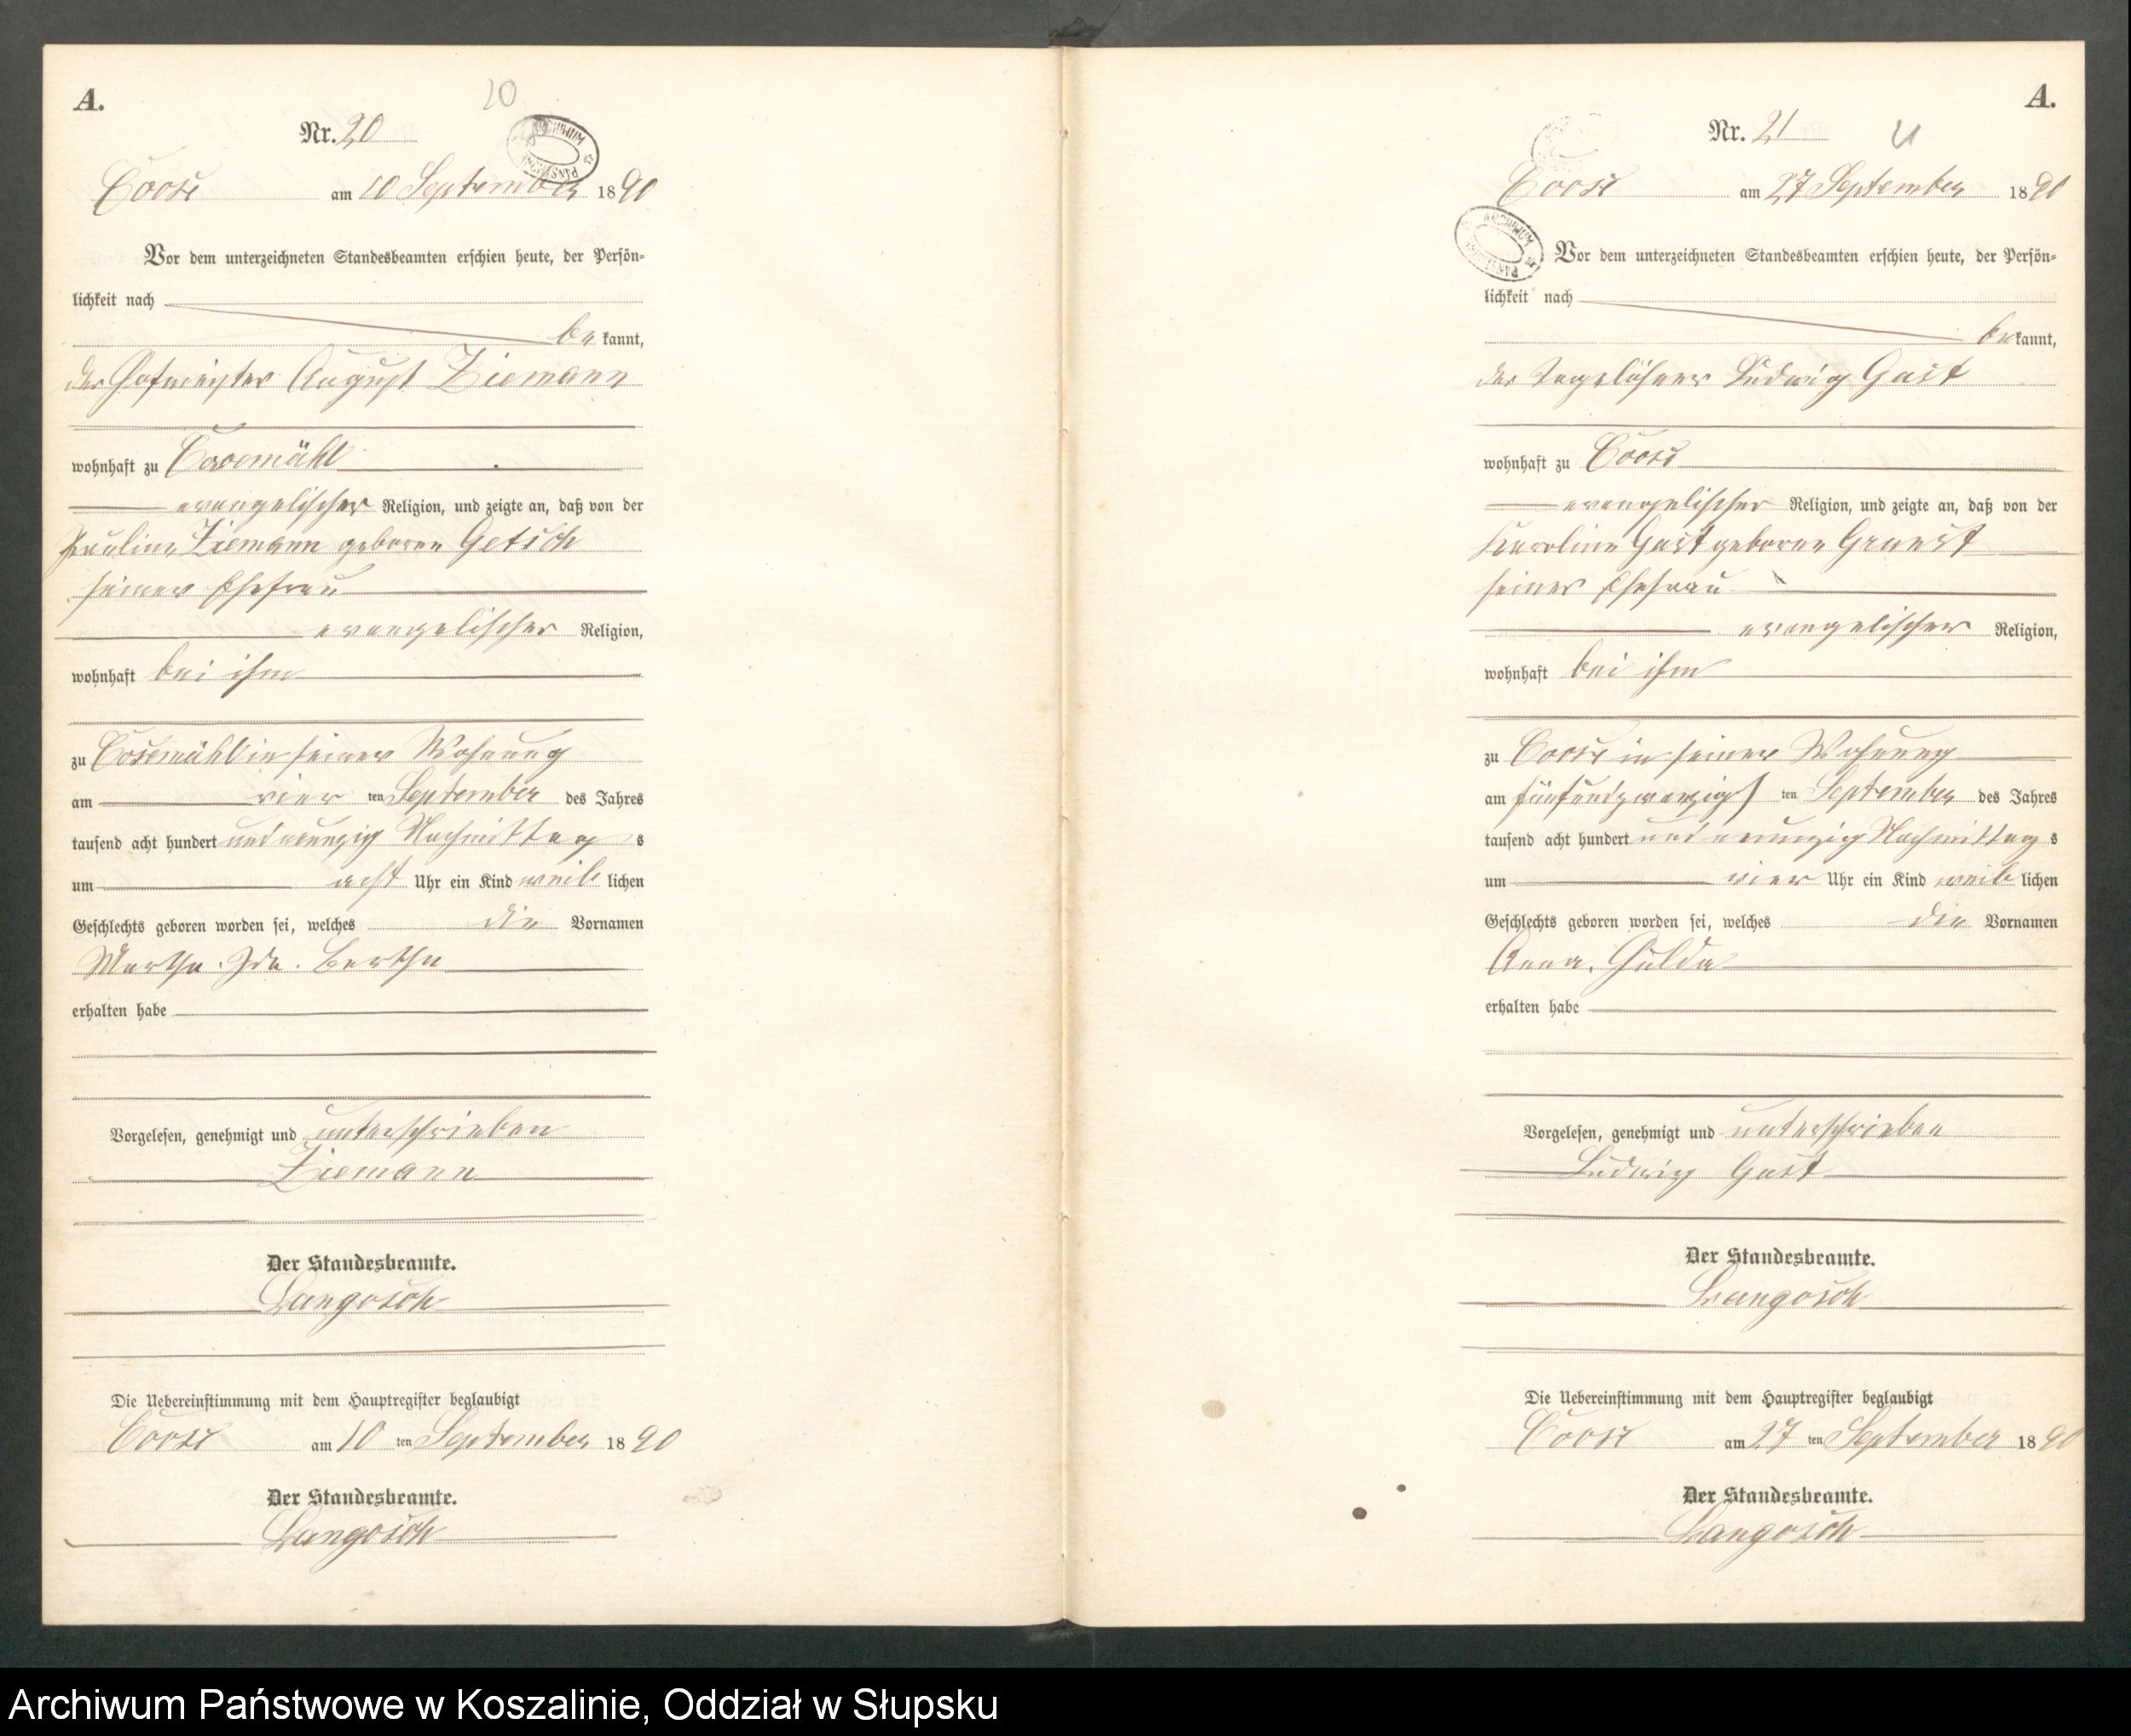 A.
20
Nr. 20
Coose am 10 September 1890
Vor dem unterzeichneten Standesbeamten erschien heute, der Persön-
lichkeit nach
bekannt,
der Hofmeister August Ziemann
wohnhaft zu Coosemühl
evangelischer Religion, und zeigte an, daß von der
Pauline Ziemann geboren Getsch
seiner Ehefrau
evangelischer Religion,
wohnhaft bei ihm
zu Cosemühl in seiner Wohnung
am vier ten September des Jahres
tausend acht hundert und neunzig Nachmittag s
um acht Uhr ein Kind weib lichen
Geschlechts geboren worden sei, welches die Vornamen
Martha. Ida. Bertha
erhalten habe
Vorgelesen, genehmigt und unterschrieben
Ziemann
Der Standesbeamte.
Langosch
Die Uebereinstimmung mit dem Hauptregister beglaubigt
Coose am 10 ten September 1890
Der Standesbeamte.
Langosch
A.
Nr. 21
21
Coose am 27 September 1890
Vor dem unterzeichneten Standesbeamten erschien heute, der Persön-
lichkeit nach
bekannt,
der Tagelöhner Ludwig Gast
wohnhaft zu Coose
evangelischer Religion, und zeigte an, daß von der
Karoline Gast geborne
seiner Ehefrau
evangelischer Religion,
wohnhaft bei ihm
zu Coose in seiner Wohnung
am fünfundzwanzigs ten September des Jahres
tausend acht hundert und neunzig Nachmittag s
um vier Uhr ein Kind weib lichen
Geschlechts geboren worden sei, welches die Vornamen
Anna. Hulda
erhalten habe
Vorgelesen, genehmigt und unterschrieben
Ludwig Gast
Der Standesbeamte.
Langosch
Die Uebereinstimmung mit dem Hauptregister beglaubigt
Coose am 27 ten September 1890
Der Standesbeamte.
Langosch
Archiwum Państwowe w Koszalinie, Oddział w Słupsku